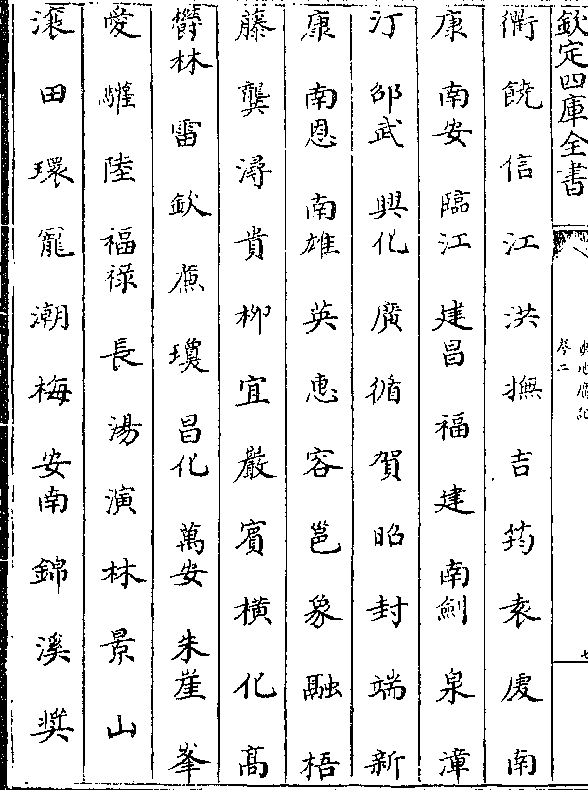 欽定四庫全書
卷二
衢饒信江洪撫吉筠袁䖍南
康南安臨江建昌福建南劍泉漳
汀邵武興化廣循賀昭封端新
康南恩南雄英惠容邕象融梧
藤龔潯貴柳宜嚴賓橫化髙
欝林雷欽廉瓊昌化萬安朱崖峯
愛驩陸福祿長湯演林景山
滚田環寵潮梅安南錦溪奬